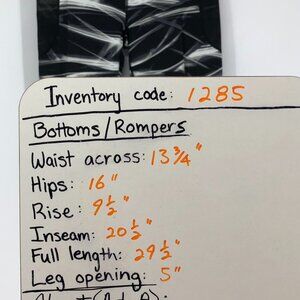 Inventory code: 1285
Bottoms/Rompers
Waist across: 13 3/4"
Hips: 16"
Rise: 9 1/2"
Inseam: 20 1/2"
Full length: 29 1/2"
Leg opening: 5"